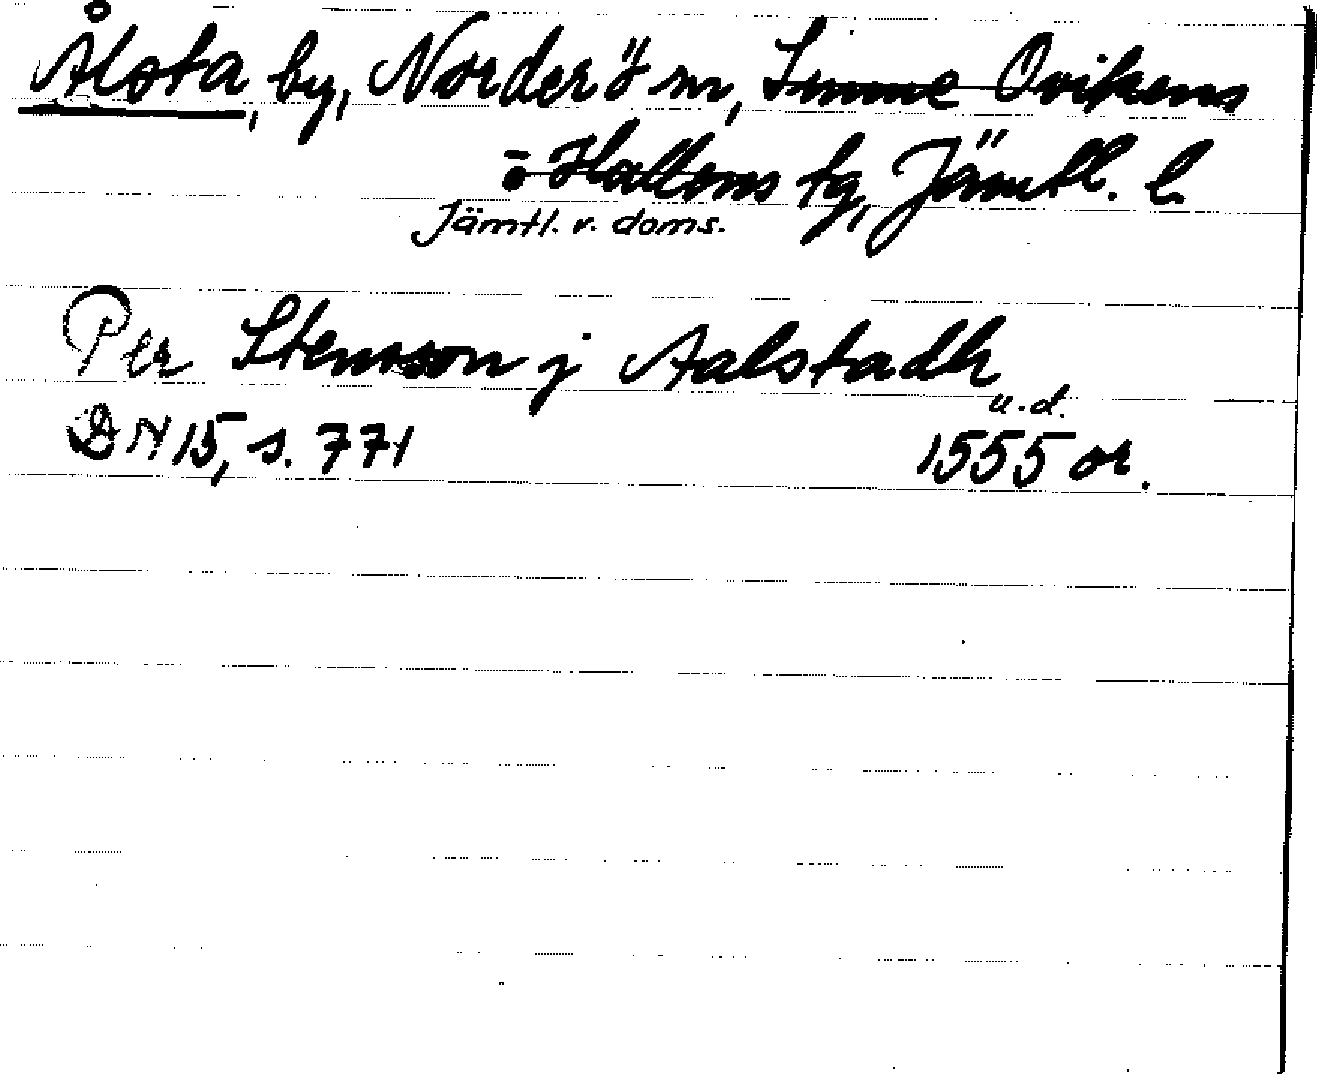 Ålsta, by, Norderö sn, Sunne Ovikens
o Hallens tg, Jämtl. l.
Jämtl. v. doms.
Per Stensson j Aalstadh
u.d.
DN 15, s. 771 1555 or.